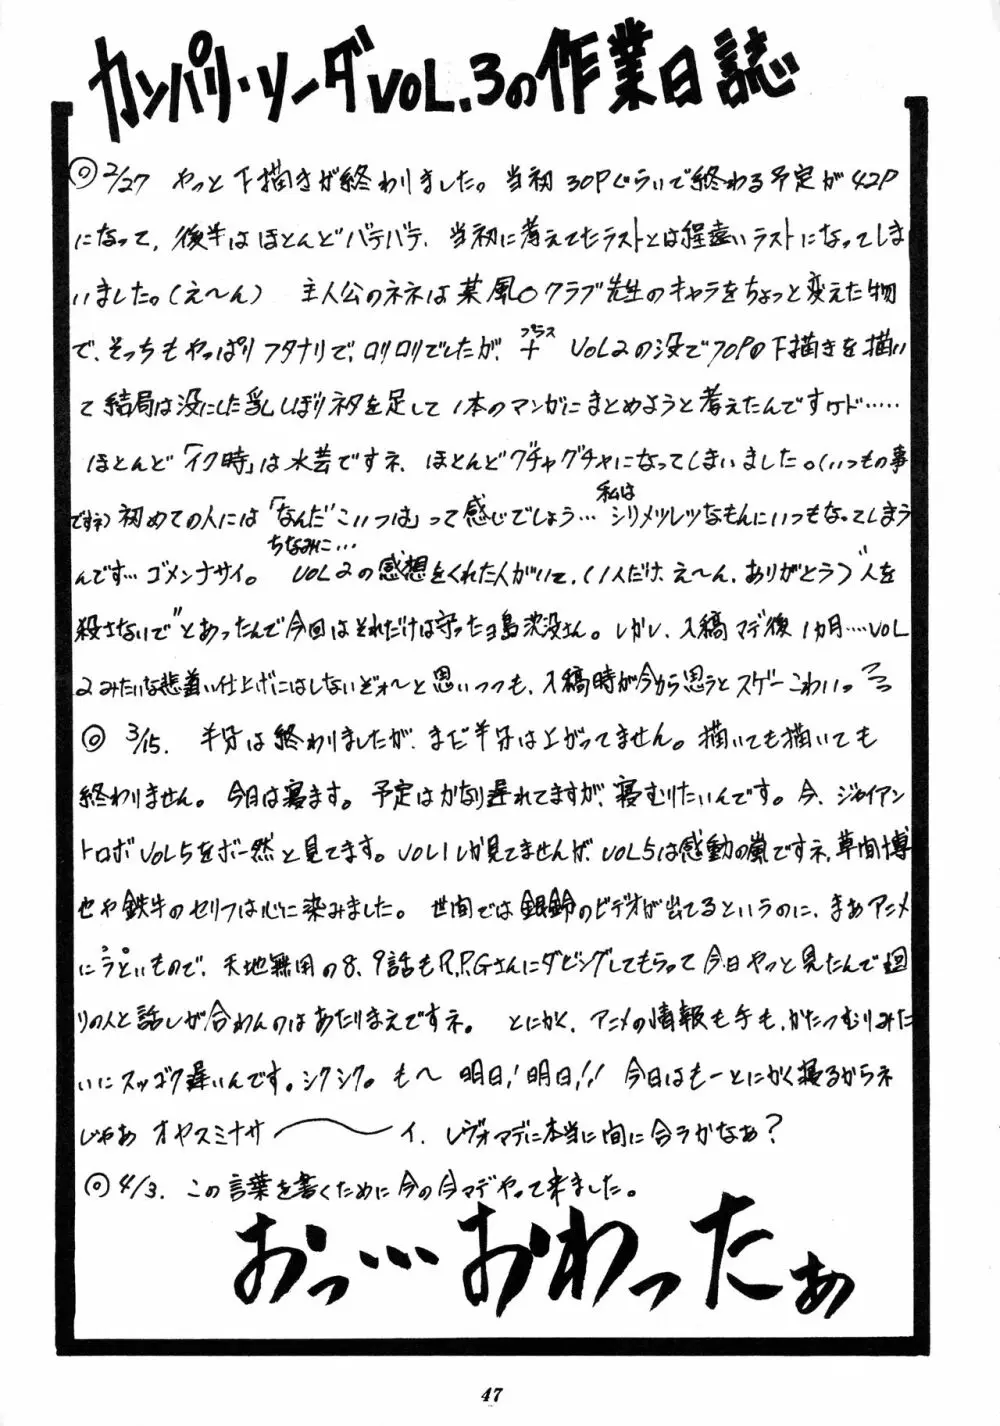 カンパリ・ソーダVOL.3の作業日誌
◎2/27 やっと下描きが終わりました。当初30Pぐらいで終わる予定が42P
になって、後半はほとんどバテバテ、当初に考えてたラストとは程遠いラストになってしま
いました。(え〜ん) 主人公のネネは某風○クラブ先生のキャラをちょっと変えた物
で、そっちもやっぱりフタナリで、ロリロリでしたが、+ VOL2の没で70Pの下描きを描い
プラス
て結局は没にした乳しぼりネタを足して1本のマンガにまとめようと考えたんですケド……
ほとんど「イク時」は水芸ですネ、ほとんどグチャグチャになってしまいました。(いつもの事
ですネ)初めての人には「なんだこいつは」って感じでしょう…私はシリメツレツなもんにいつもなってしまう
んです…ゴメンナサイ。ちなみに…VOL2の感想をくれた人がいて、(1人だけ、え〜ん、ありがとう)"人を
殺さないで"とあったんで今回はそれだけは守ったヨ島沈没さん。しかし、入稿マデ後1カ月……VOL
2みたいな悲しい仕上げにはしないぞォ〜と思いつつも、入稿時が今から思うとスゲーこわい。
◎ 3/15. 半分は終わりましたが、まだ半分は上がってません。描いても描いても
終わりません。今日は寝ます。予定はかなり遅れてますが、寝むりたいんです。今、ジャイアン
トロボVOL5をボー然と見てます。VOL1しか見てませんが、VOL5は感動の嵐ですネ、草間博
士や鉄牛のセリフは心に染みました。世間では銀鈴のビデオが出てるというのに、まあアニメ
にうといもので、天地無用の8、9話もR.P.Gさんにダビングしてもらって今日やっと見たんで廻
りの人と話しが合わんのはあたりまえですネ。とにかく、アニメの情報も手も、かたつむりみた
いにスッゴク遅いんです。シクシク。も〜 明日!明日!! 今日はもーとにかく寝るからネ
じゃあ オヤスミナサ〜〜イ. レヴォマデに本当に間に合うかなぁ?
◎4/3. この言葉を書くために今の今マデやって来ました。
おっ…おわったぁ
47